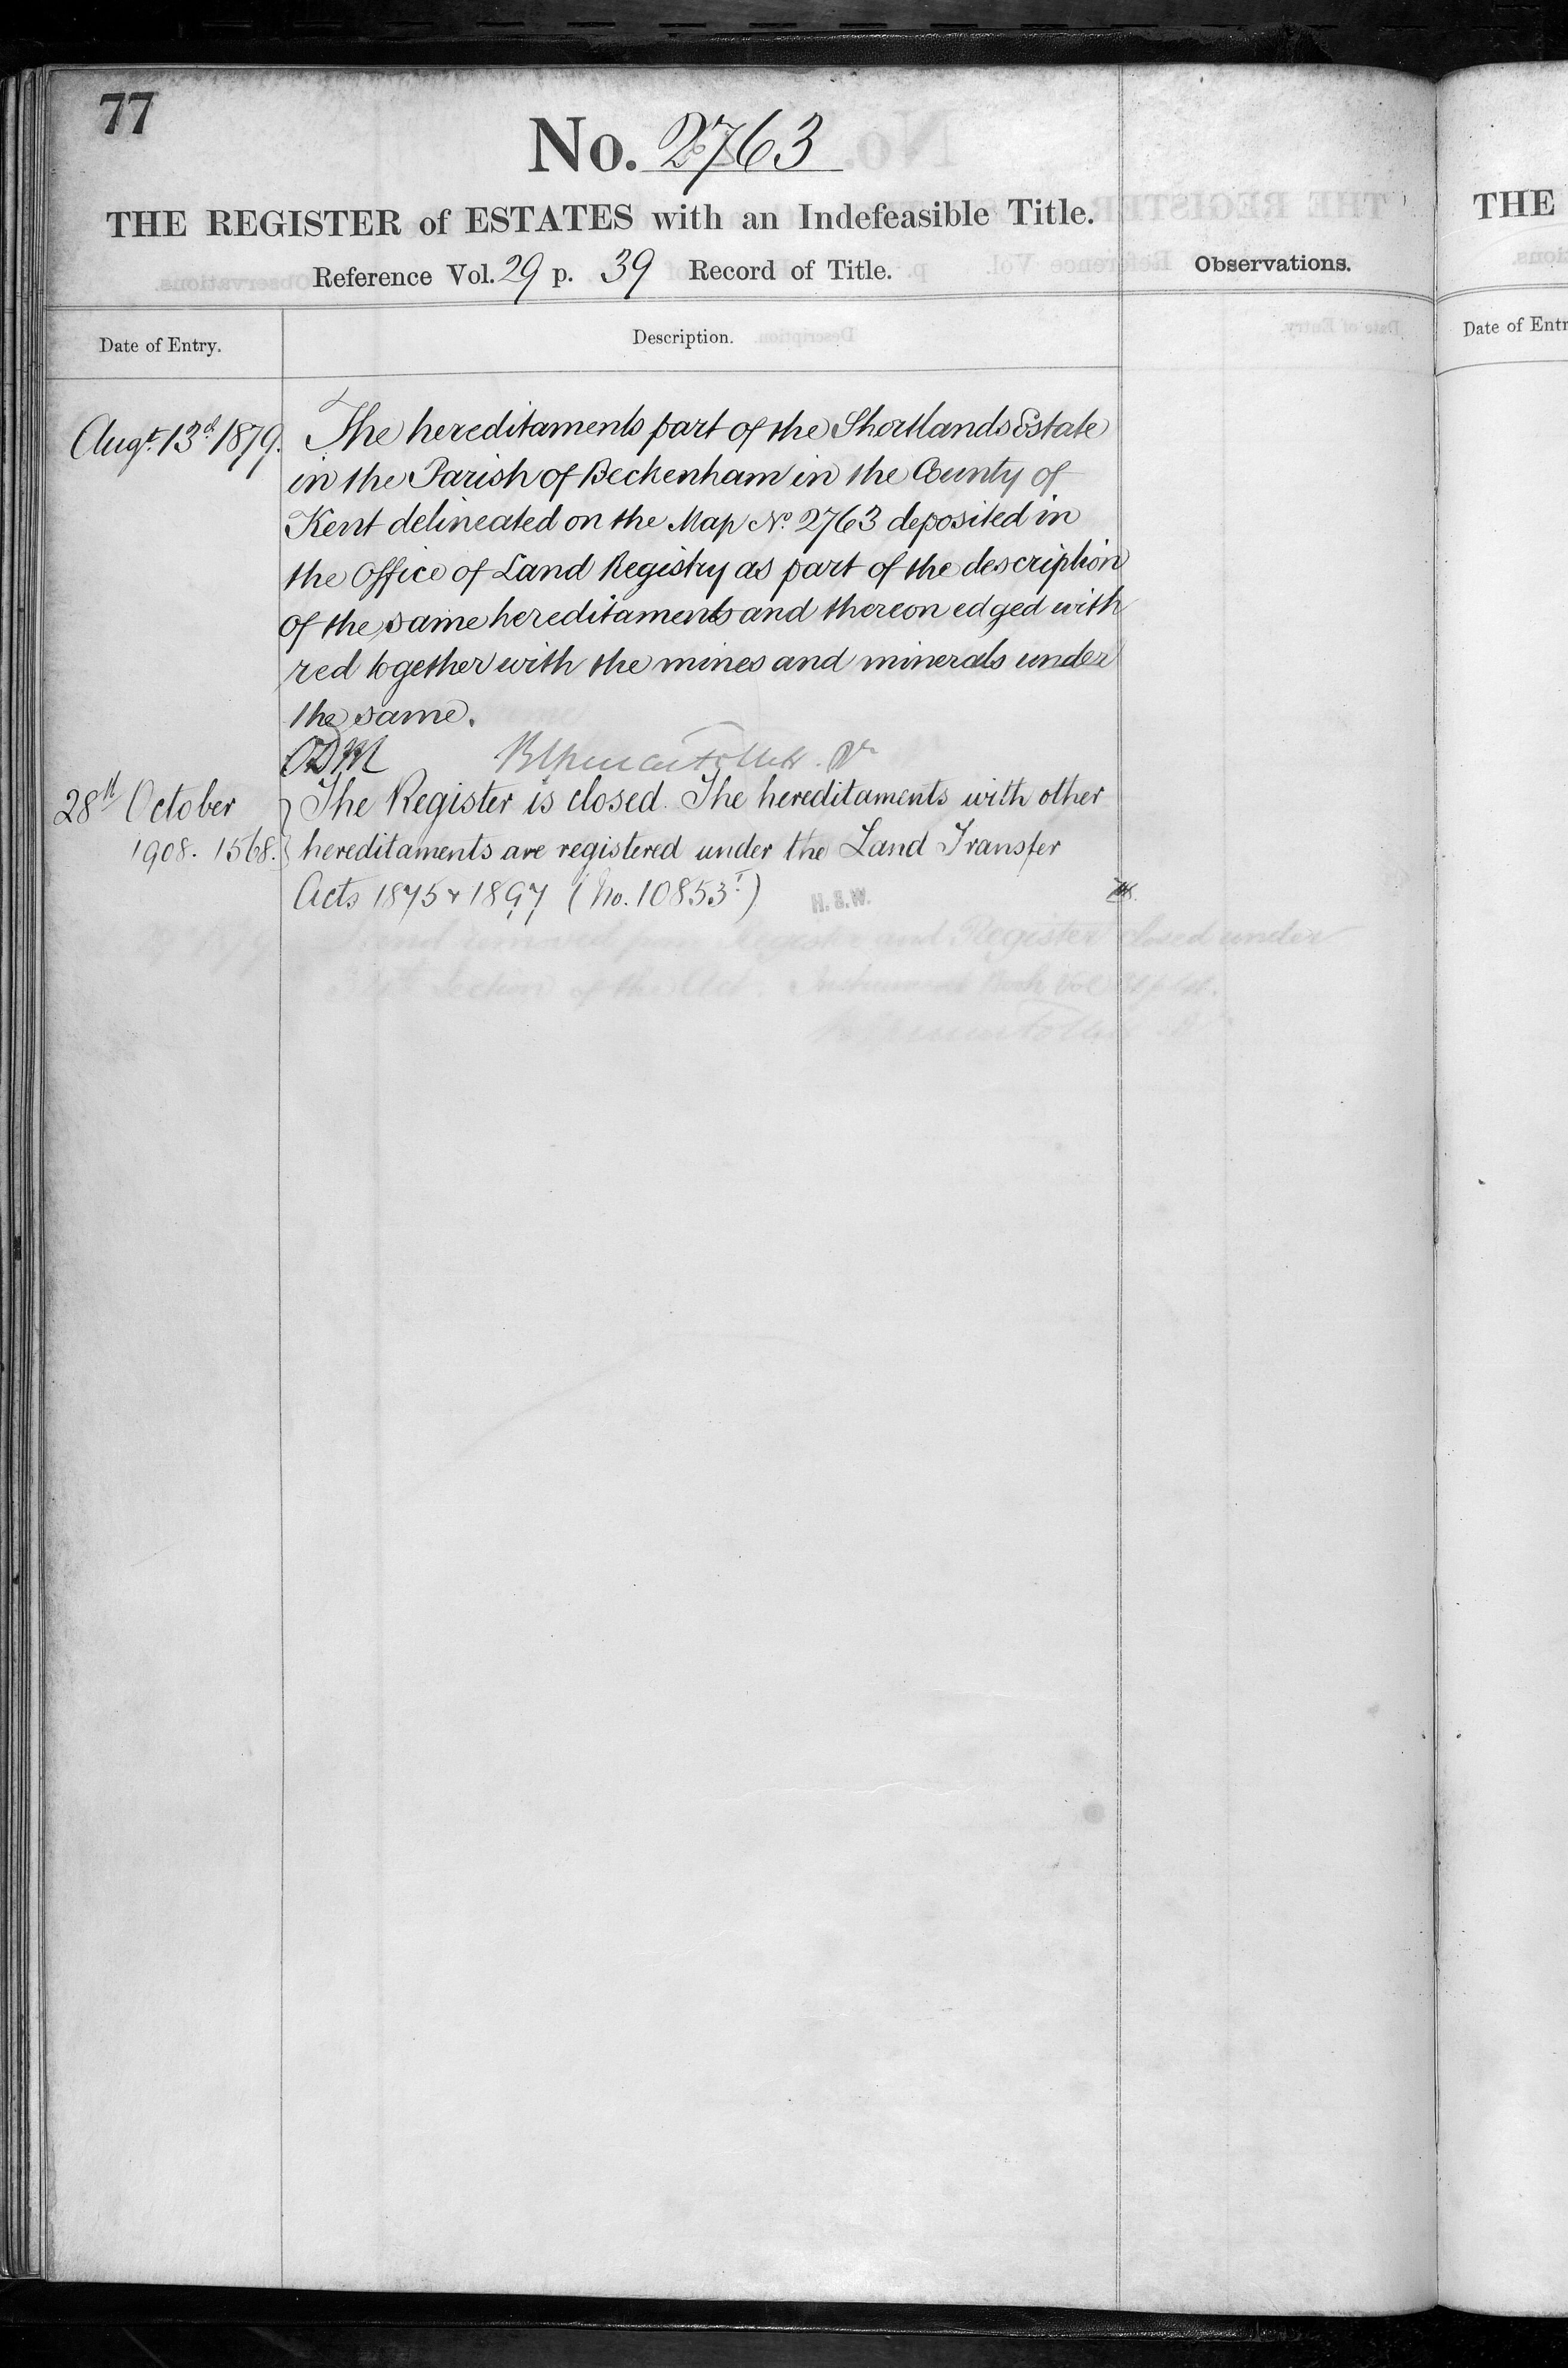 77
No. 2763
THE REGISTER of ESTATES with an Indefeasible Title.
Reference Vol. 29 p. 39 Record of Title.
Observations.
Date of Entry.
Description.
Augt. 13th 1879.
The hereditaments part of the Shortlands Estate
in the Parish of Beckenham in the County of
Kent delineated on the Map No. 2763 deposited in
the Office of Land Registry as part of the description
of the same hereditaments and thereon edged with
red together with the mines and minerals under
the same.
28th October
1908. 1568.
The Register is closed. The hereditaments with other
hereditaments are registered under the Land Transfer
Acts 1875 & 1897 (No. 10853)
H.S.W.
THE
Date of Entr